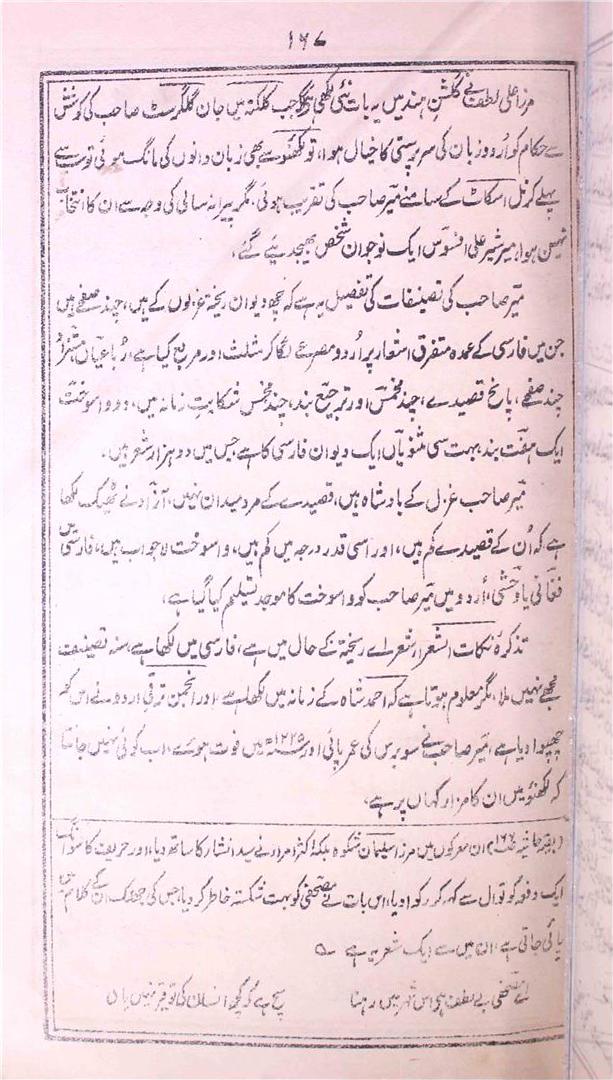 ۱۶۷
مرزا علی لطف نے گلشنِ ہند میں یہ بات نئی لکھی ہے کہ جب کلکتہ میں جان گلگرسٹ صاحب کی کوشش
سے حکام کو اُردو زبان کی سرپرستی کا خیال ہوا، تو لکھنؤ سے بھی زبان دانوں کی مانگ ہوئی تو سب سے
پہلے کرنل اسکاٹ کے سامنے میر صاحب کی تقریب ہوئی، مگر پیرانہ سالی کی وجہ سے ان کا انتخاب
نہیں ہوا، میر شیر علی افسوس ایک نوجوان شخص بھیجد یئے گئے،
میر صاحب کی تصنیفات کی تفصیل یہ ہے کہ چھ دیوان ریختہ غزلوں کے ہیں، چند صفحے ہیں
جن میں فارسی کے عمدہ متفرق اشعار پر اُردو مصرعے لگا کر مثلث اور مربع کیا ہے، رباعیاں مستزاد
چند صفحے، پانچ قصیدے، چند مخمس اور ترجیع بند، چند مخمس شکایتِ زمانہ میں، دو واسوخت
ایک ہفت بند بہت سی مثنویاں ایک دیوان فارسی کا ہے جس میں دو ہزار شعر ہیں۔
میر صاحب غزل کے بادشاہ ہیں، قصیدے کے مرد میدان نہیں، آزاد نے ٹھیک لکھا
ہے کہ اُن کے قصیدے کم ہیں، اور اسی قدر درجہ میں کم ہیں، واسوخت لا جواب ہیں، فارسی میں
فغانی یا وحشی، اُردو میں میر صاحب کو واسوخت کا موجد تسلیم کیا گیا ہے،
تذکرہ نکات الشعراء شعراے ریختہ کے حال میں ہے، فارسی میں لکھا ہے، سنہ تصنیف
مجھے نہیں ملا، مگر معلوم ہوتا ہے کہ احمد شاہ کے زمانہ میں لکھا ہے اور انجمن ترقی اردو نے اس کو
چھپوا دیا ہے، میر صاحب نے سو برس کی عمر پائی اور ۱۲۲۵ھ میں فوت ہوئے، اب کوئی نہیں جانتا
کہ لکھنؤ میں ان کا مزار کہاں پر ہے،
(بقیہ حاشیہ ص۱۶۶) ان معرکوں میں مرزا سلیمان شکوہ بلکہ اکثر امراء نے سید انشار کا ساتھ دیا، اور حریف کا سوانگ
ایک دفعہ کو توال سے کہہ کر رکوا دیا، اس بات نے مصحفی کو بہت شکستہ خاطر کر دیا، جس کی جھلک ان کے کلام میں
پائی جاتی ہے، ان میں سے ایک شعر یہ ہے ؎
اے مصحفی بے لطف ہے اس شہر میں رہنا سچ ہے کہ کچھ انسان کی توقیر نہیں یاں